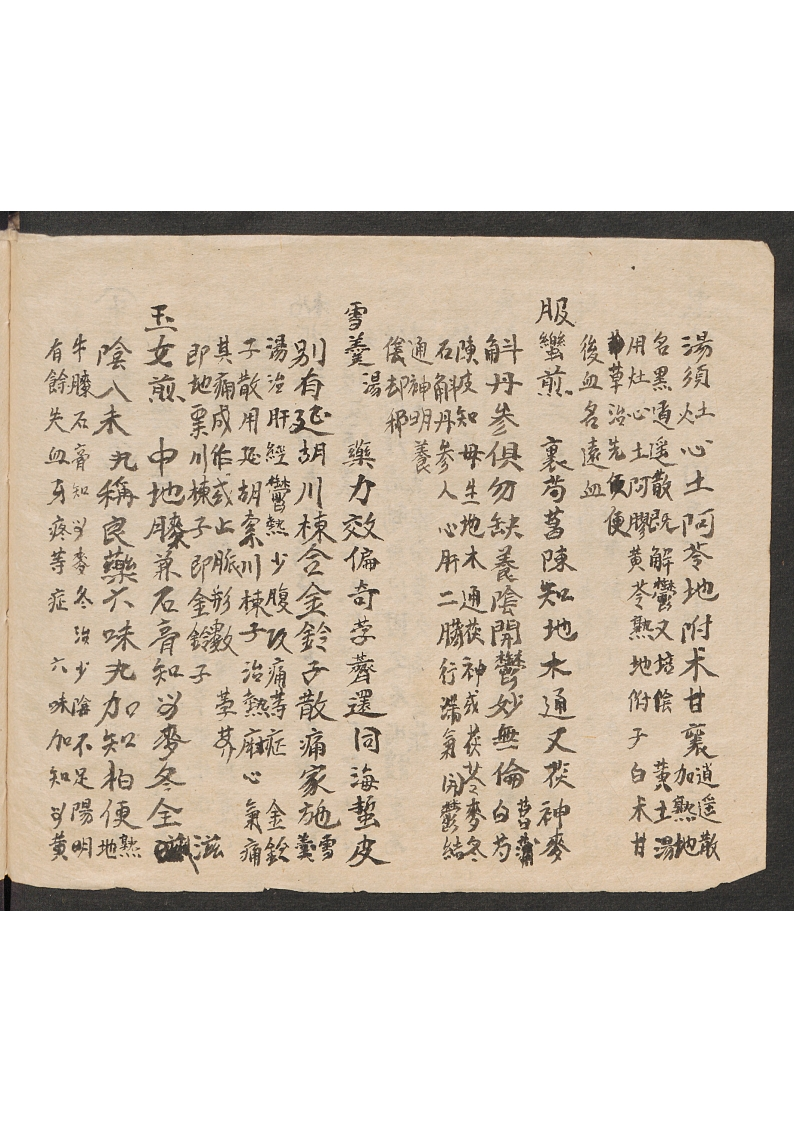 湯須灶心土阿苓地附朮甘襄 逍遥散
名黑逍遥散既解鬱又培陰 加熟地
用灶心土阿膠黄苓熟地附子白术甘 黄土湯
草治先便
後血名遠血
服蠻煎 裏芍菖陳知地木通又茯神麥
斛丹參俱勿缺養陰開鬱妙無倫 白芍 菖蒲
陳皮知母生地木通茯神或茯苓麥冬
石斛丹參人心肝二臟行滯氣開鬱結
通神明養
僾却邪
雪羹湯 藥力效偏奇荸薺還同海蜇皮
別有延胡川楝合金鈴子散痛家施 雪羹
湯治肝經鬱熱少腹攻痛等症 金鈴
子散用延胡索川楝子治熱麻心氣痛
其痛或作或止脈形數 荸荠
即地栗川楝子即金鈴子
玉女煎 中地膝兼石膏知必麥冬全 滋
陰八味丸稱良藥六味丸加知柏便 熟地
牛膝石膏知必麥冬治少陰不足陽明
有餘失血牙疼等症 六味加知必黄